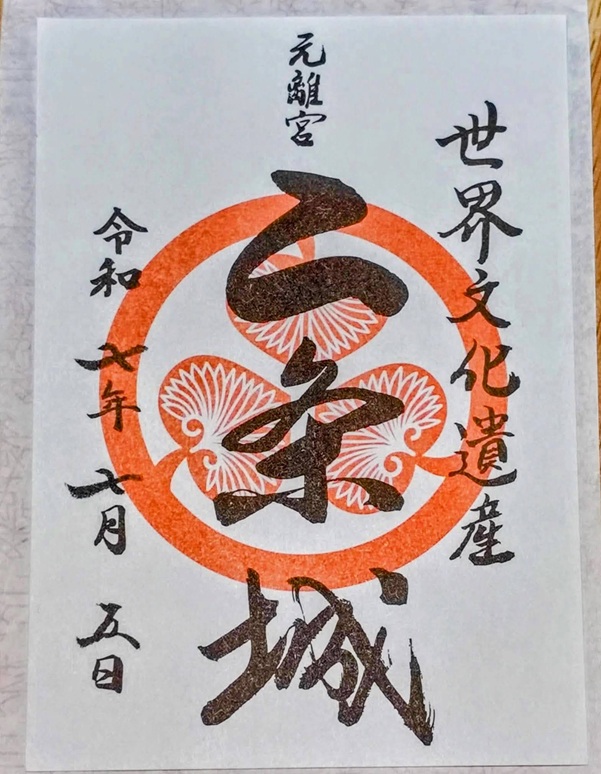 世界文化遺産
元離宮
二条城
令和七年七月五日